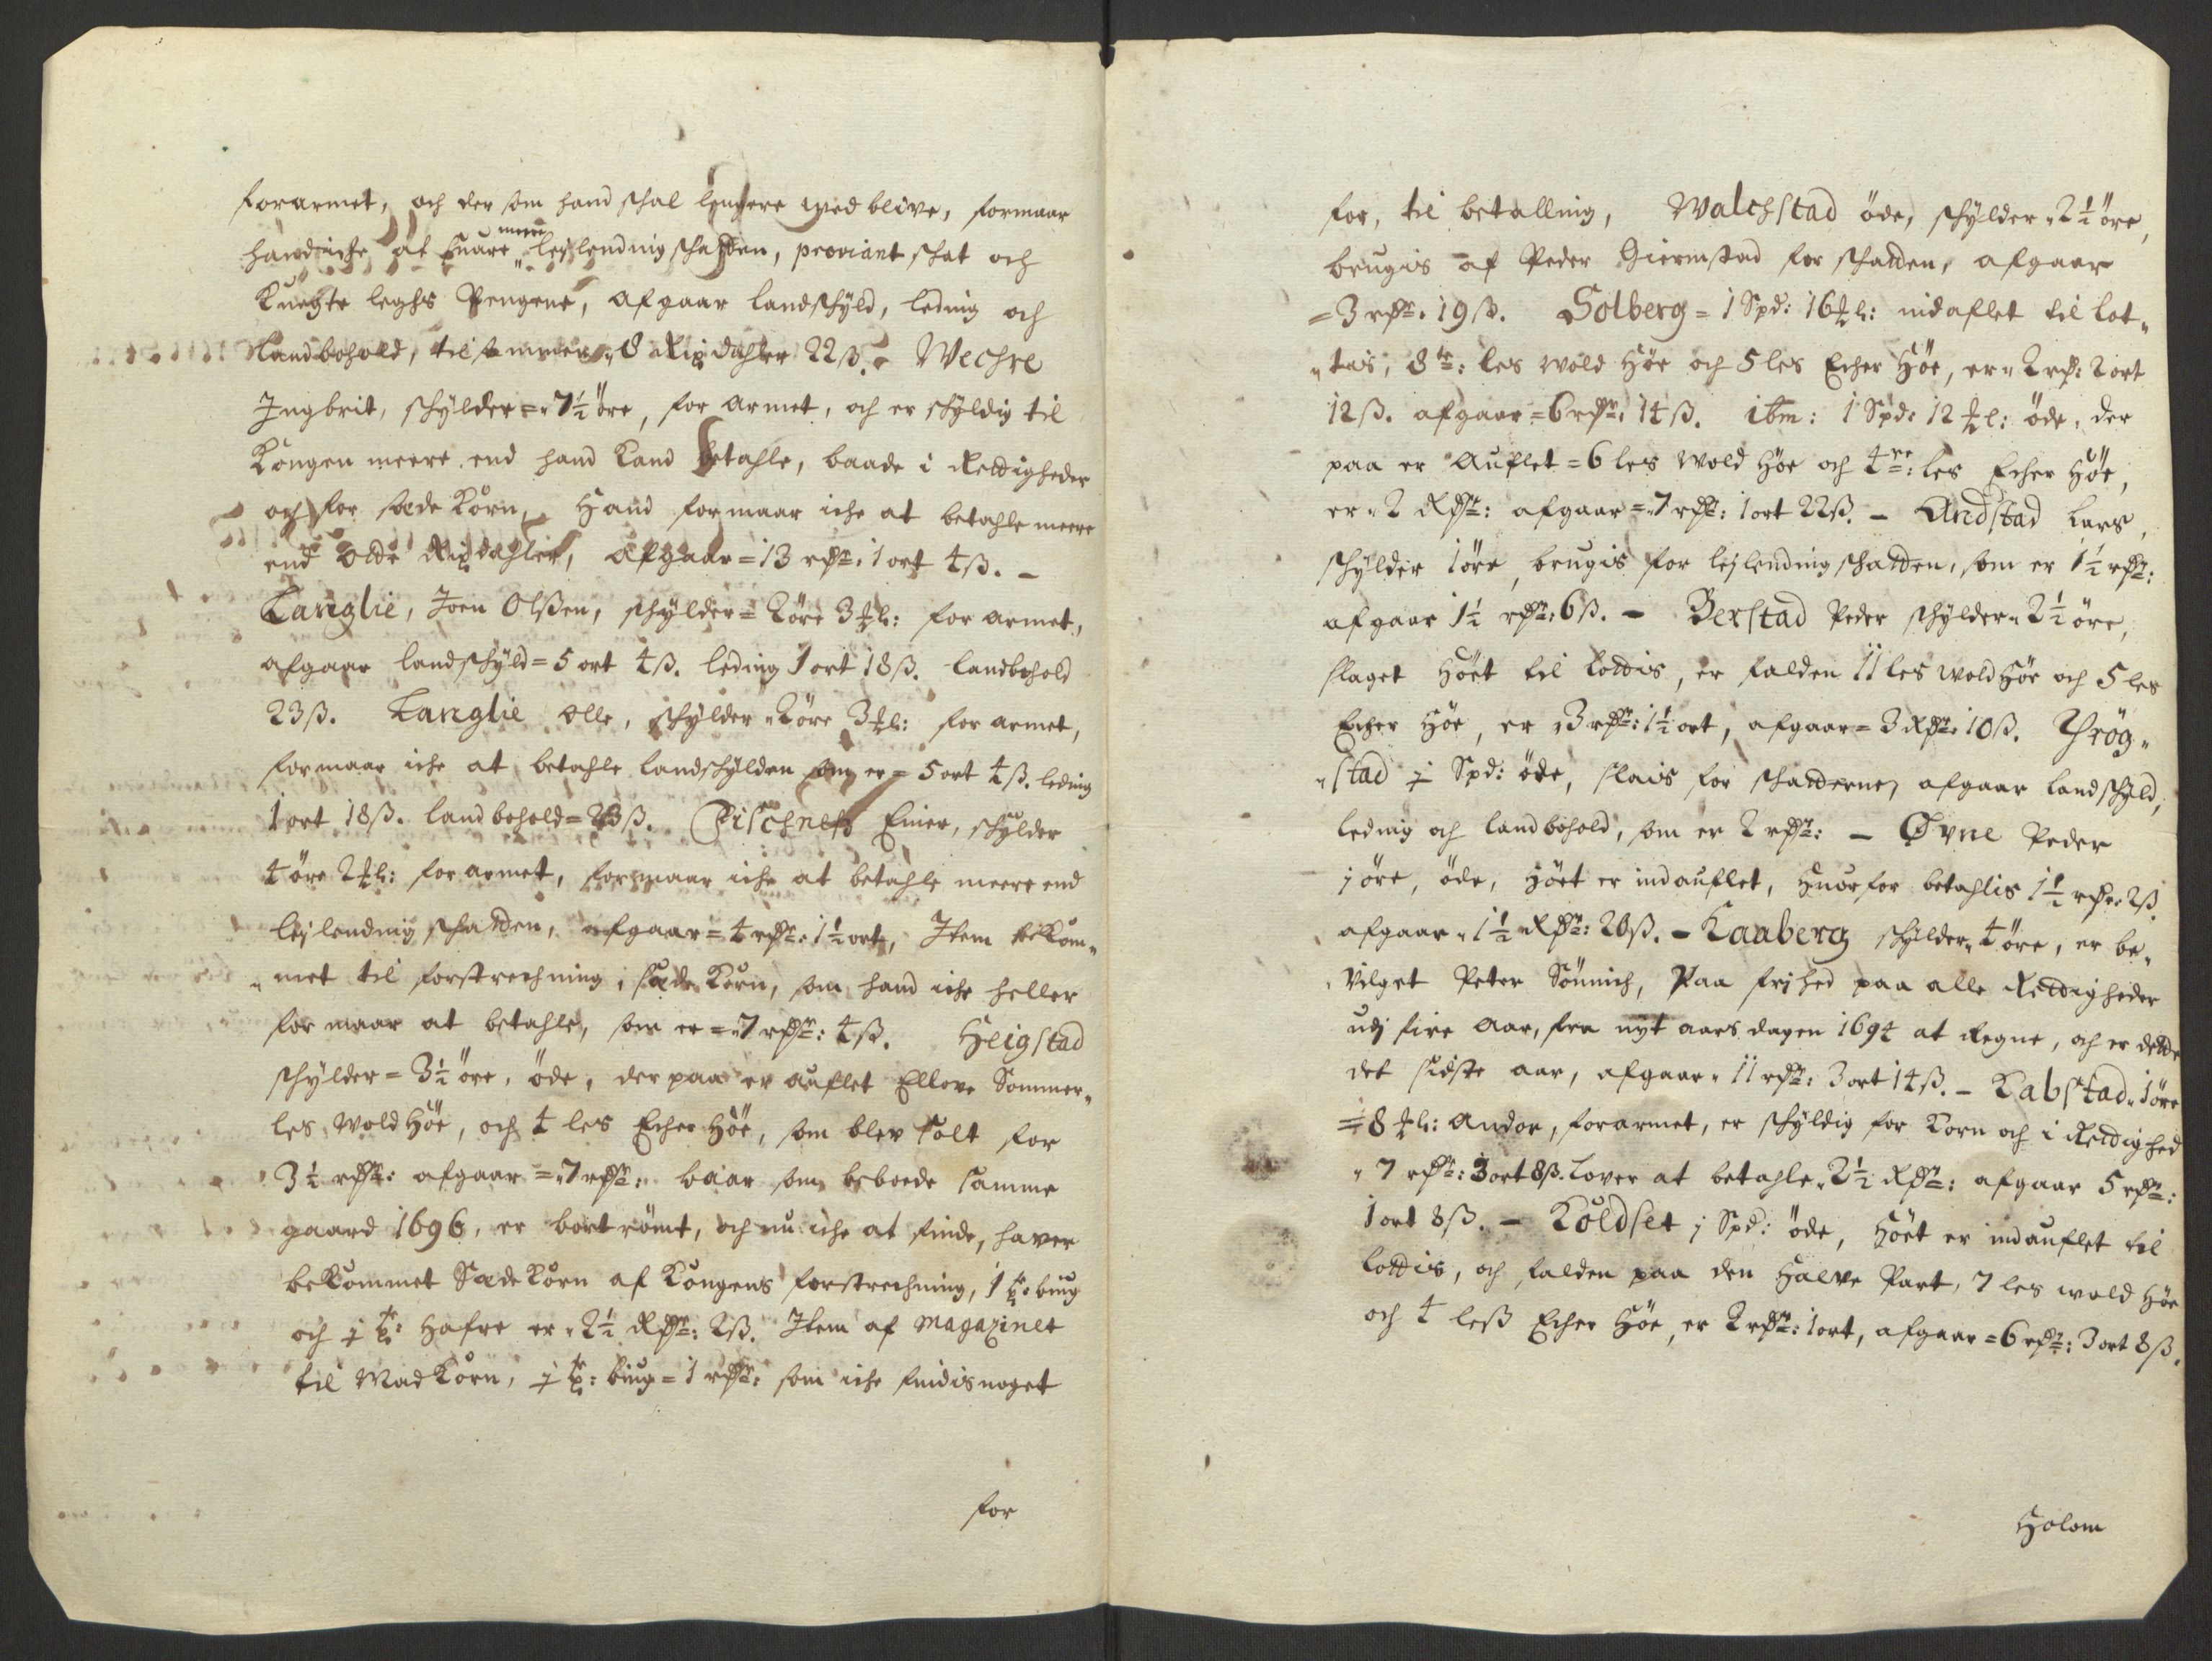 forarmet, och der som hand schal lengere wed blive, formaar
hand iche at Suare meere leylending schatten, proviant schat och
Knegte leghs Pengene, afgaar landschyld, leding och
landbohold, tilsammen 8 Rixdahler 22 ß. Wechre
Ingbrit, schylder = 7½ öre, for armet, och er schyldig til
Kongen meere end hand Kand betahle, baade i Rettigheder
och for sæde Korn, Hand formaar iche at betahle meere
end otte Rixdahler, afgaar = 13 rdr. 1 ort 4 ß. –
Langlie, Joen Olßen, schylder = 2 öre 3 L: for armet,
afgaar landschyld = 5 ort 4 ß. leding 1 ort 18 ß. landbohold
23 ß. Langlie Olle, schylder 2 öre 3 L: for armet,
formaar iche at betahle landschylden som er = 5 ort 4 ß. leding
1 ort 18 ß. land bohold = 23 ß. Fischneß Einer, schylder
4 öre 2 L: for armet, formaar iche at betahle meere end
leylending schatten, afgaar = 4 rdr. 1½ ort, Item bekom„
„met til forstrechning i sæde Korn, som hand iche heller
for maar at betahle, som er = 7 rdr: 4 ß. Heigstad
schylder = 3½ öre, öde, der paa er auflet Ellove Sommer„
les Wold Höe, och 4 les Echer Höe, som blev solt for
3½ rdr: afgaar = 7 rdr: baar som beboede samme
gaard 1696, er bort römt, och nu iche at finde, haver
bekommet Sæde Korn af Kongens forstrechning, 1 tr: biug
och j tr: Hafre er „2½ Rdr: 2 ß. Item af Magazinet
til Mad Korn, j tr: biug = 1 rdr: som iche findis noget
for
for, til betalling, Walchstad öde, schylder „2½ öre,
brugis af Peder Giermstad for schatten, afgaar
= 3 rdr. 19 ß. Solberg = 1 Spd: 16 L: indaflet til lot„
„tis, 8te: les wold Höe och 5 les Echer Höe, er „2 rd: 2 ort
12 ß. afgaar = 6 rdr: 14 ß. ibm: 1 Spd: 12 L: öde, der
paa er Auflet = 6 les Wold Höe och 4re: les Echer Höe,
er „2 Rdr: afgaar = 7 rdr: 1 ort 22 ß. – Andstad Lars,
schylder 1 öre, brugis for leylending schatten, som er 1½ rdr:
afgaar 1½ rdr: 6 ß. – Berstad Peder schylder „2½ öre,
slaget Höet til lottis, er falden 11 les Wold Höe och 5 les
Echer Höe, er 3 rdr: 1½ ort, afgaar = 3 Rdr: 10 ß. Thrög„
„stad j Spd: öde, slais for schatterne, afgaar landschyld,
leding och landbohold, som er 2 rdr: – Øvne Peder
j öre, öde, Höet er indauflet, Huorfor betahlis 1½ rdr. 2 ß.
afgaar „1½ Rdr: 20 ß. – Kaaberg schylder „4 öre, er be„
vilget Peter Sönnich, Paa frihed paa alle Rettigheder
udj fire Aar, fra nyt aars dagen 1694 at Regne, och er dette
det sidste aar, afgaar „11 rdr: 3 ort 14 ß. – Kabstad „1 öre
= 8 L: Andor, forarmet, er schyldig for Korn och i Rettighed
„7 rdr: 3 ort 8 ß. lover at betahle „2½ Rdr: afgaar 5 rdr:
1 ort 8 ß. – Koldset j Spd: öde, Höet er indauflet til
lottis, och falden paa den Halve Part, 7 les wold Höe
och 4 leß Echer Höe, er 2 rdr: 1 ort, afgaar = 6 rdr: 3 ort 8 ß.
Holom